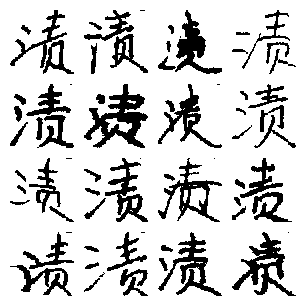 渍渍渍渍
渍渍渍渍
渍渍渍渍
渍渍渍渍